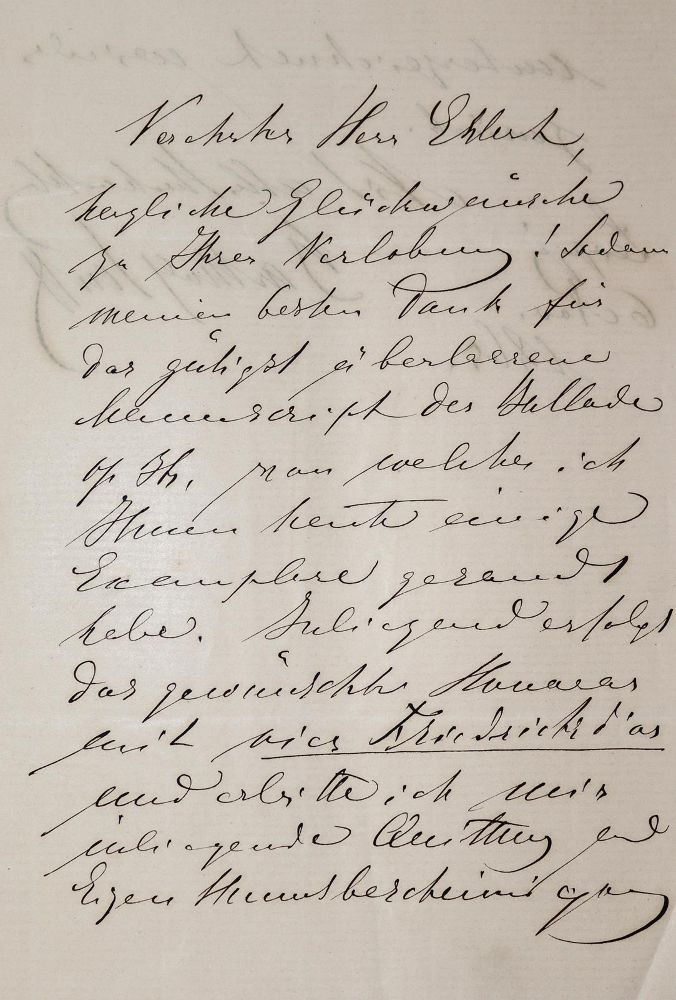 Verehrter Herr Ehlert,
herzliche Glückwünsche
zu Ihrer Verlobung! Sodann
meinen besten Dank für
das gütigst überlassene
Manuscript der Ballade
op von welcher ich
Ihnen heute einige
Exemplare gesandt
habe. Inliegend erfolgt
das gewünschte Honorar
mit vier Friedrichsd'or
und erbitte ich mir
inliegende Quittung und
Eigenthumsbescheinigung